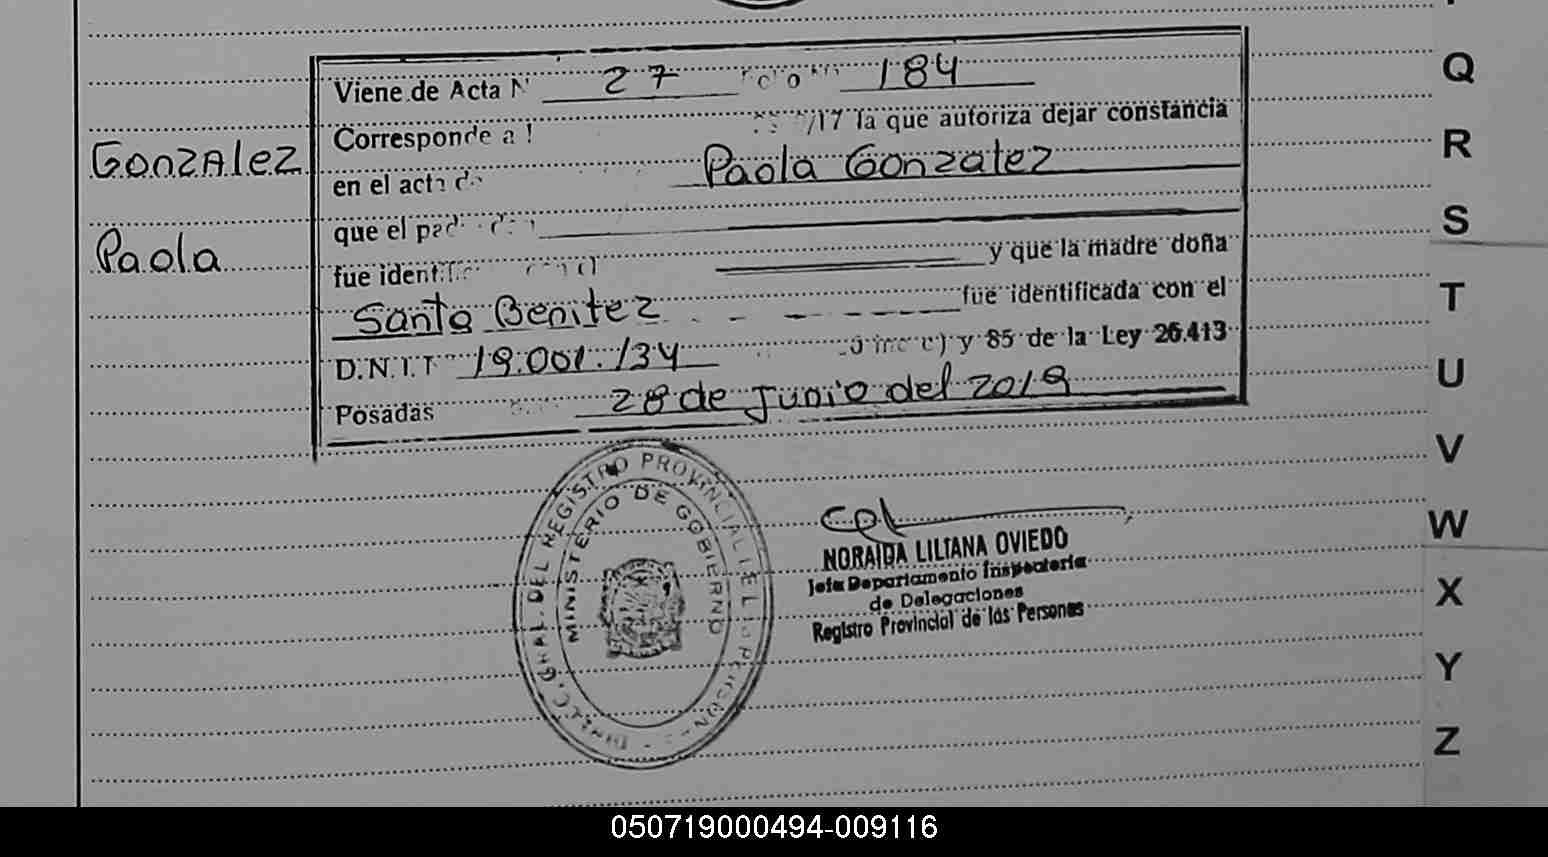 Q
Viene de Acta N 27 184
Corresponde a /17 la que autoriza dejar constancia
R
GonzAlez
en el acta de Paola Gonzalez
S
que el
Paola
fue y que la madre doña
T
Santa Benitez fue identificada con el
D.N.I. 19.001.134 y 85 de la Ley 26.413
U
Posadas 28 de Junio del 2019
V
REGISTRO PROVINCIAL
MINISTERIO DE GOBIERNO
W
NORAIDA LILIANA OVIEDO
Jefa Departamento Inspectoria
de Delegaciones
X
Registro Provincial de las Personas
Y
Z
050719000494-009116